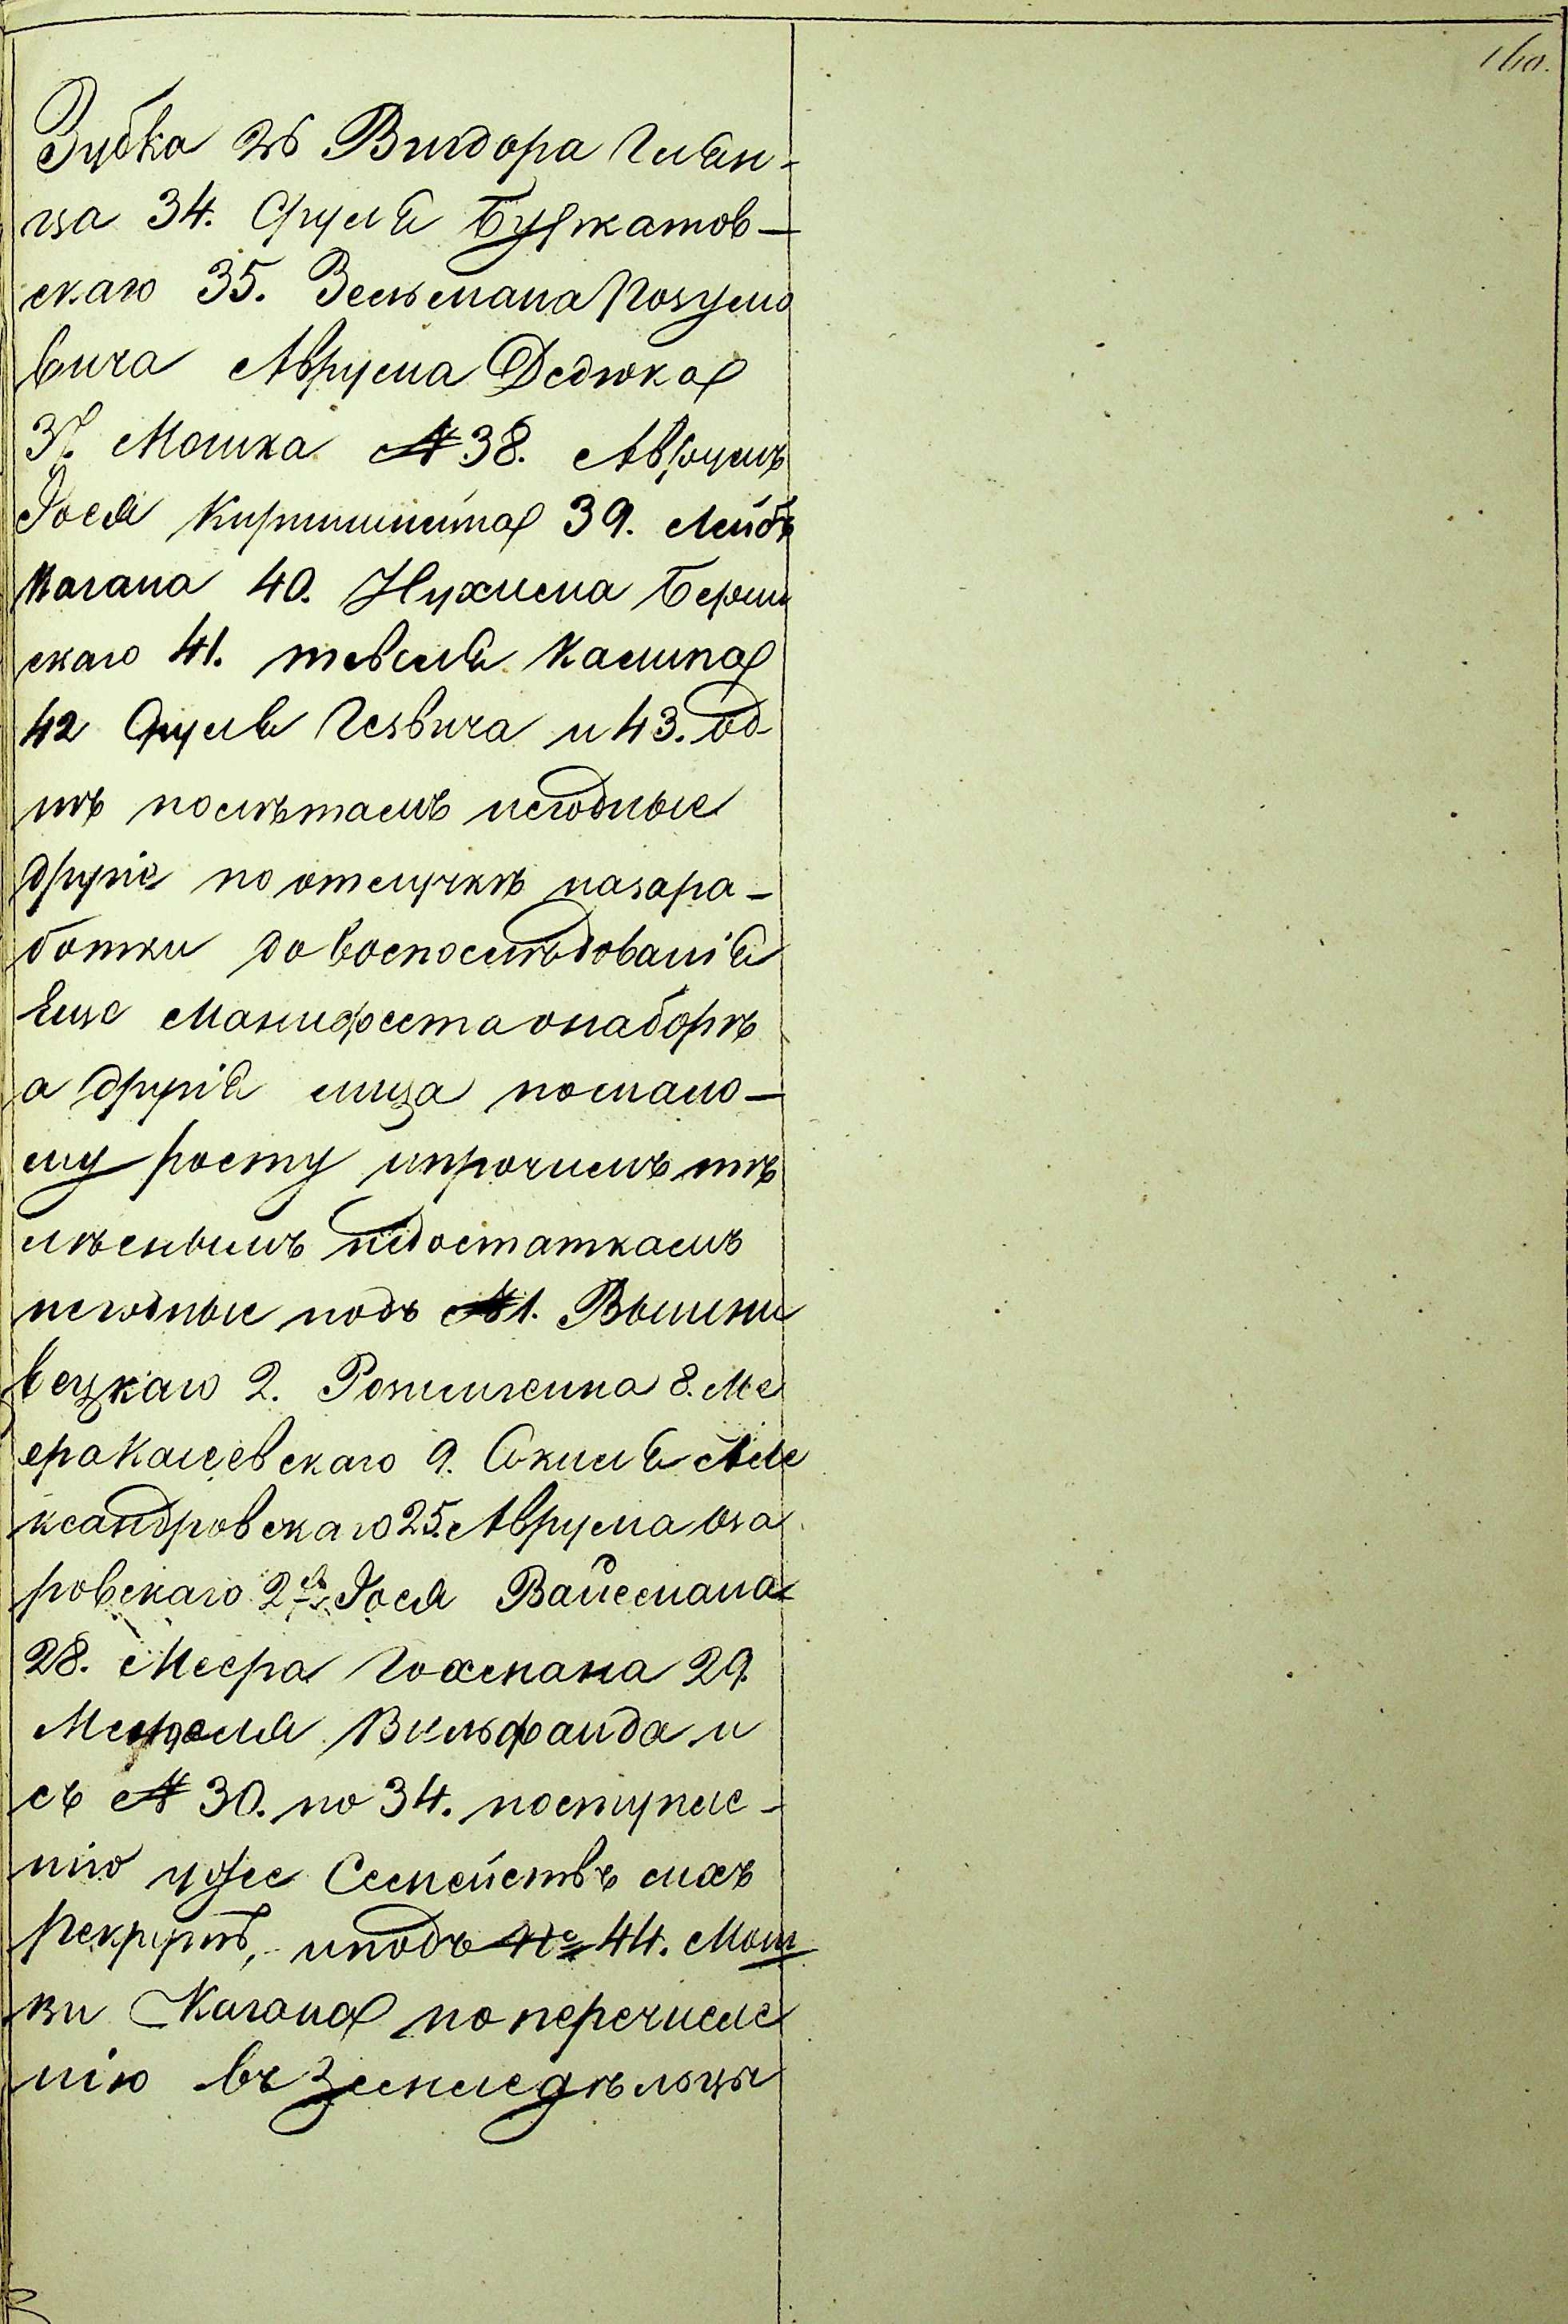 160.
Зубка 26 Вигдора Глян-
ца 34. Сруля Буркатов-
скаго 35. Зельмана Розумо
вича Аврума Дедюка
37. Мошка № 38. Аврумъ
Іося Киршнита 39. Лейбъ
Кагана 40. Нухима Берш
скаго 41. тевеля Камина
42 Сруля Гезвича и 43. од
нѣ полѣтамъ негодные
другіе по отлучкѣ назара-
ботки до воспослѣдованія
Еще Манифеста онаборѣ
а другія лица помало-
му росту ипрочимъ тѣ
лѣснымъ недостаткамъ
негодные подъ № 1. Вышни
вецкаго 2. 8. Ме
ера Калеевскаго 9. Сикиля Але
ксандровскаго 25. Аврума Оза
ровскаго 2 Іося Вайсмана
28. Меера Гохмана 29.
Менделя Вильфанда и
съ № 30. по 34. поступле-
нію уже Семействъ ихъ
Рекрутъ, иподъ № 44. Мош
ки Кагана поперечисле
нію въ Земледѣльцы